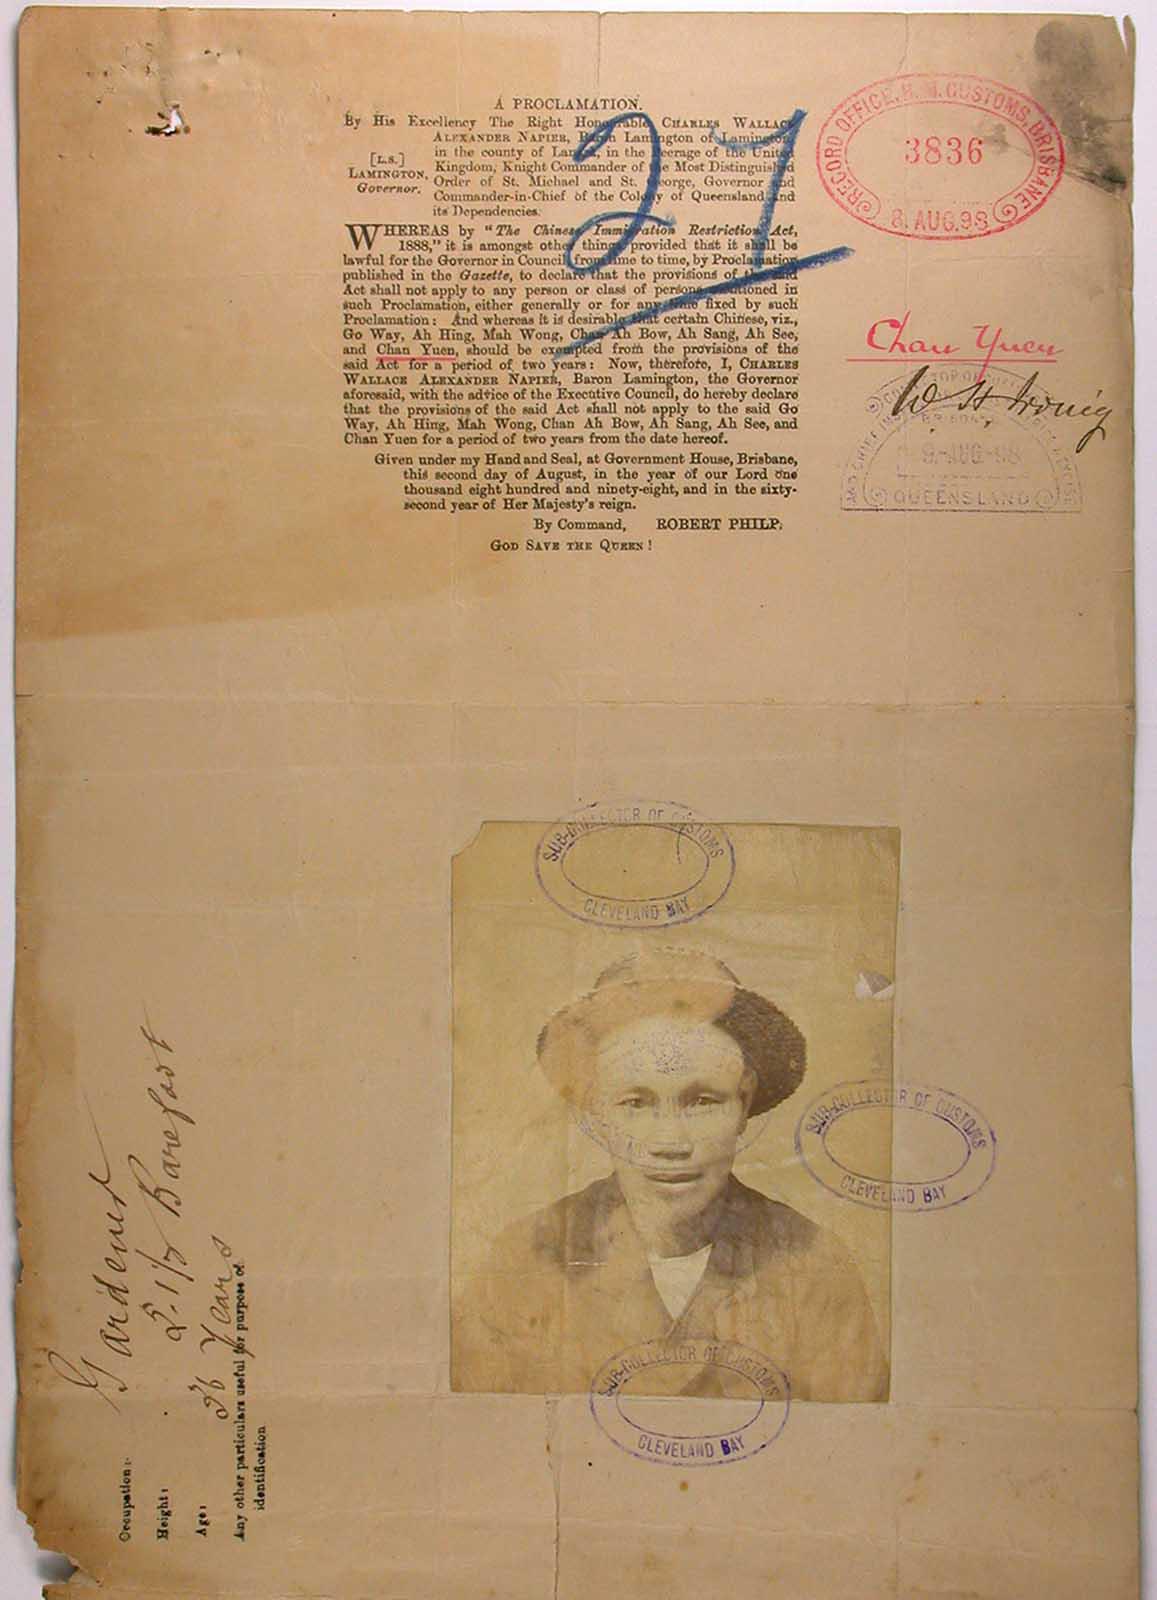 A PROCLAMATION.
By His Excellency The Right Honourable CHARLES WALLACE
ALEXANDER NAPIER, Baron Lamington of Lamington,
in the county of Lanark, in the Peerage of the United
Kingdom, Knight Commander of the Most Distinguished
Order of St. Michael and St. George, Governor and
Commander-in-Chief of the Colony of Queensland and
its Dependencies.
[L.S.]
LAMINGTON,
Governor.
WHEREAS by "The Chinese Immigration Restriction Act,
1888," it is amongst other things provided that it shall be
lawful for the Governor in Council from time to time, by Proclamation
published in the Gazette, to declare that the provisions of the said
Act shall not apply to any person or class of persons mentioned in
such Proclamation, either generally or for any time fixed by such
Proclamation: And whereas it is desirable that certain Chinese, viz.,
Go Way, Ah Hing, Mah Wong, Chan Ah Bow, Ah Sang, Ah See,
and Chan Yuen, should be exempted from the provisions of the
said Act for a period of two years: Now, therefore, I, CHARLES
WALLACE ALEXANDER NAPIER, Baron Lamington, the Governor
aforesaid, with the advice of the Executive Council, do hereby declare
that the provisions of the said Act shall not apply to the said Go
Way, Ah Hing, Mah Wong, Chan Ah Bow, Ah Sang, Ah See, and
Chan Yuen for a period of two years from the date hereof.
Given under my Hand and Seal, at Government House, Brisbane,
this second day of August, in the year of our Lord one
thousand eight hundred and ninety-eight, and in the sixty-
second year of Her Majesty's reign.
By Command, ROBERT PHILP.
GOD SAVE THE QUEEN!
27
RECORD OFFICE, H. M. CUSTOMS, BRISBANE
3836
8. AUG. 98
Chan Yuen
BRISBANE
9-AUG-98
QUEENSLAND
SUB-COLLECTOR OF CUSTOMS
CLEVELAND BAY
SUB-COLLECTOR OF CUSTOMS
CLEVELAND BAY
SUB-COLLECTOR OF CUSTOMS
CLEVELAND BAY
Occupation:- Gardener
Height: 5. 1½ Barefoot
Age: 36 Years
Any other particulars useful for purpose of
identification